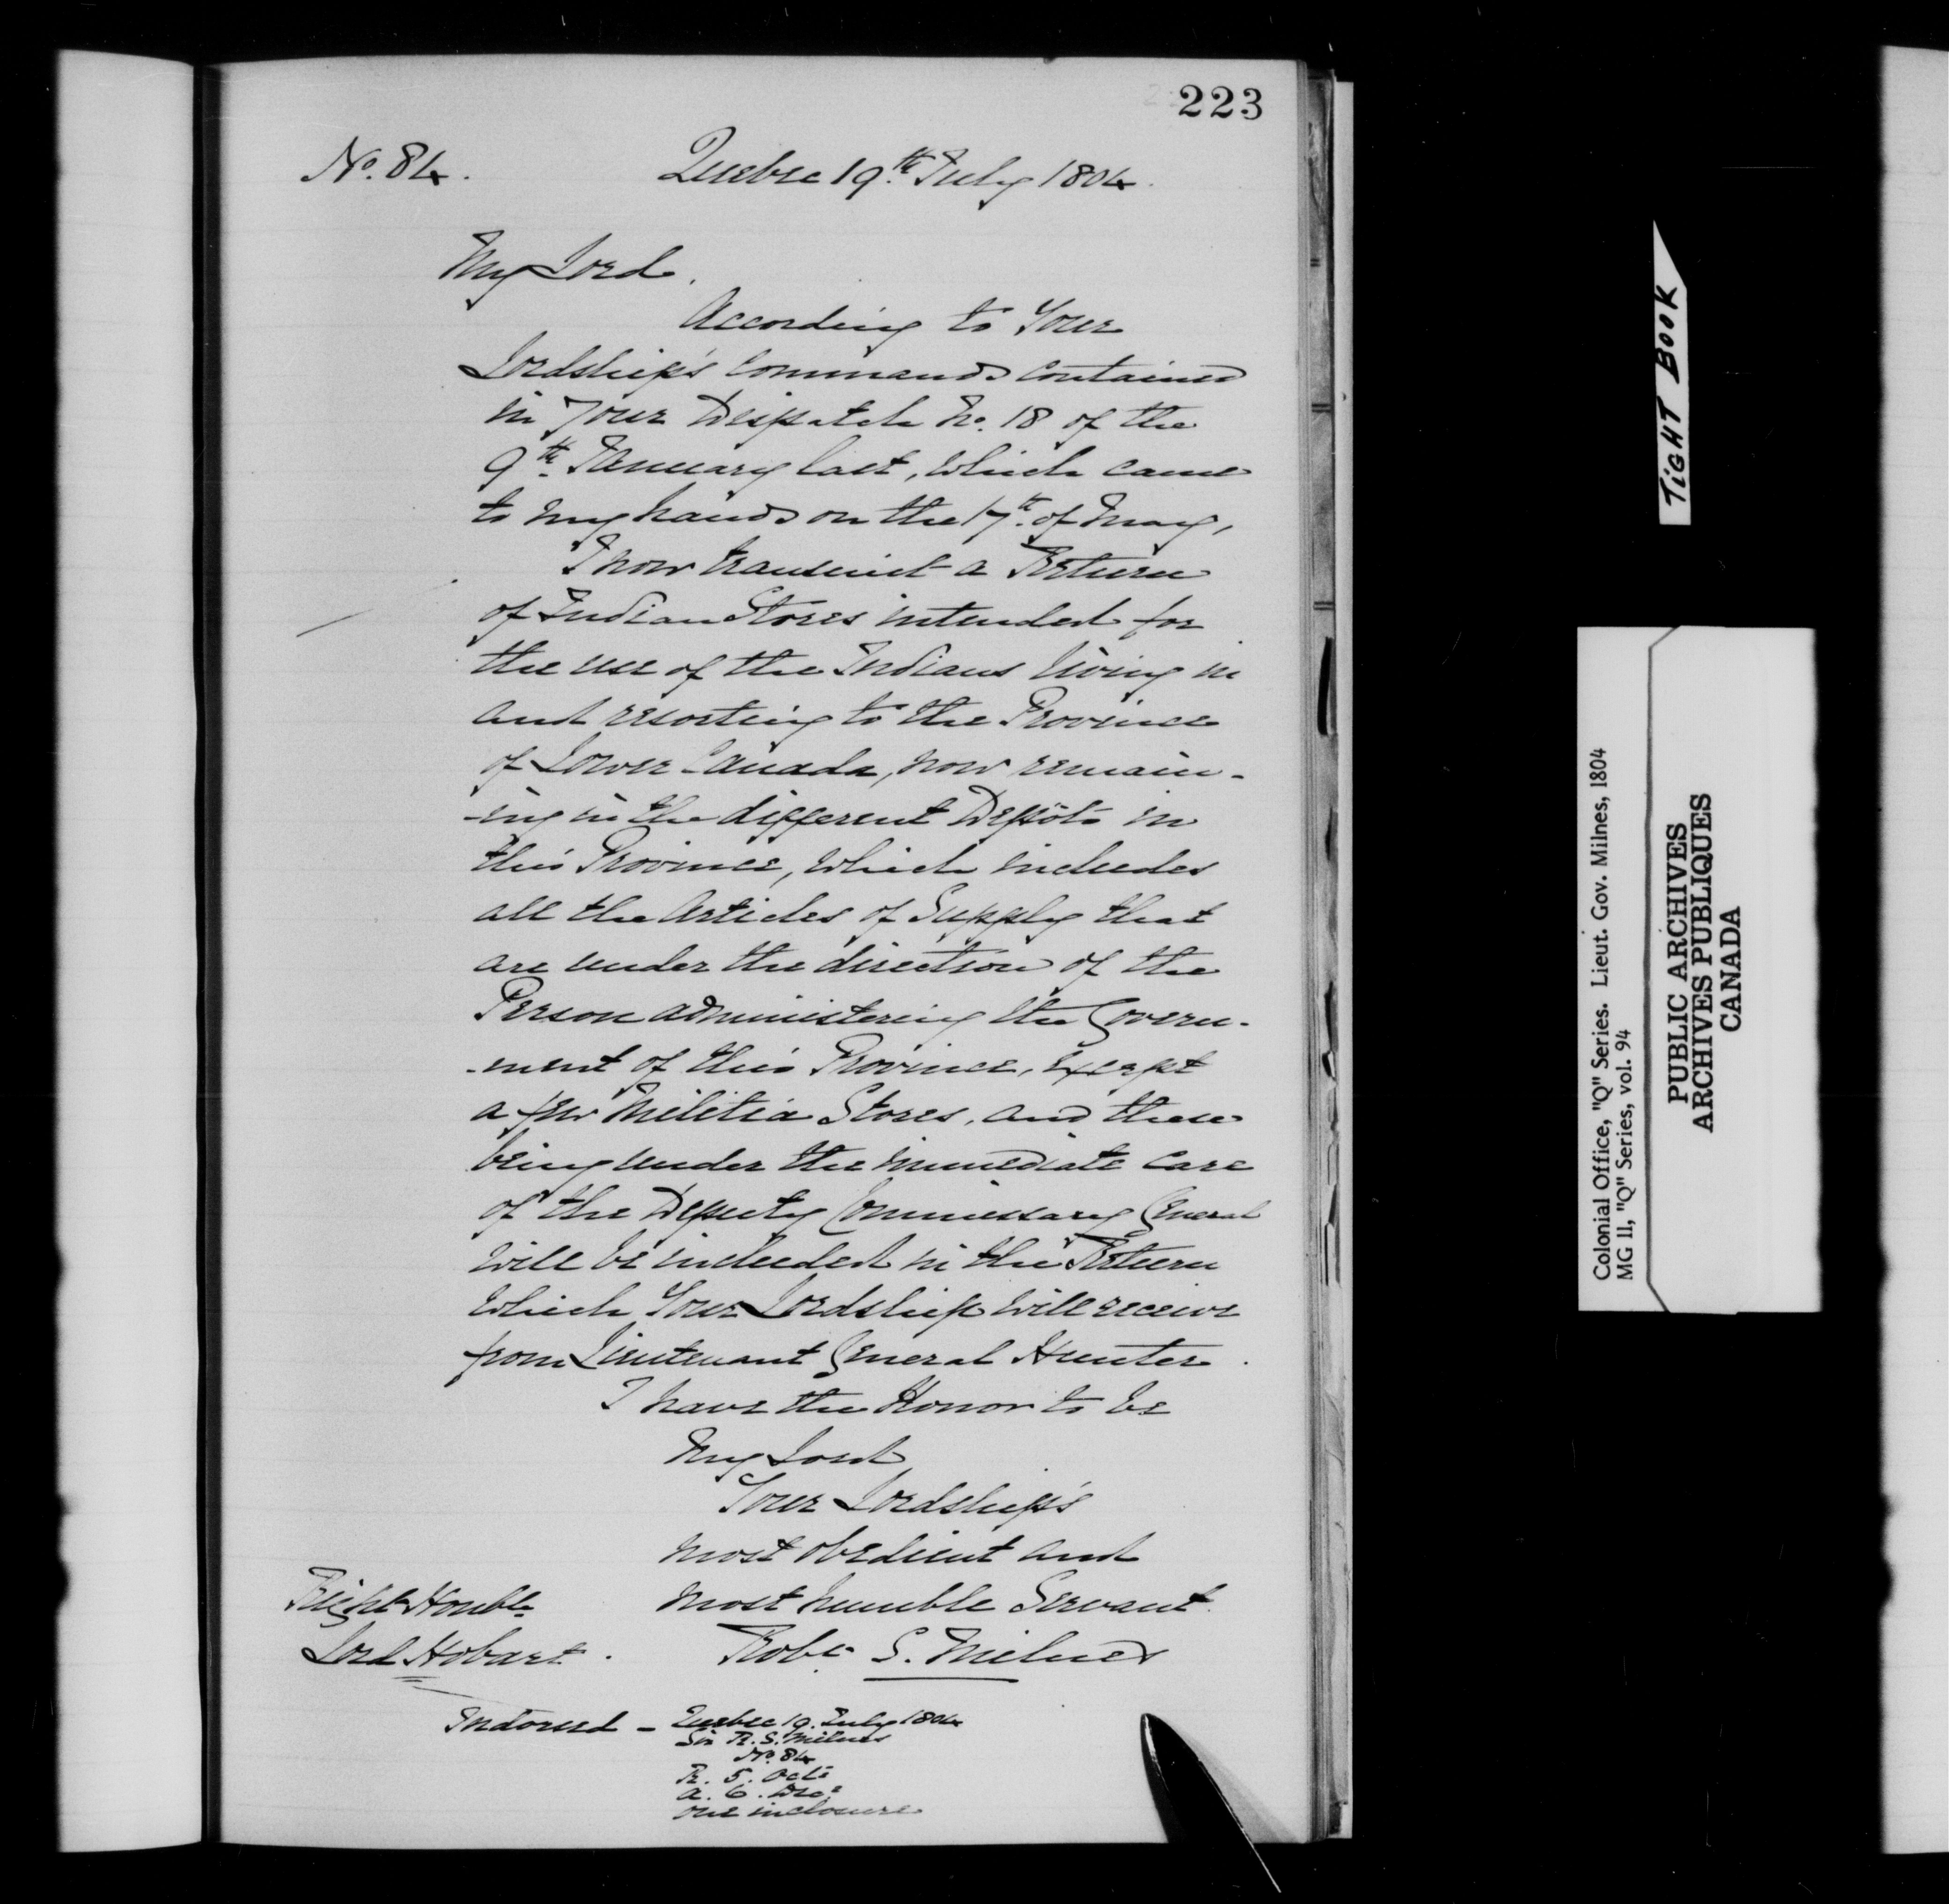 223
No. 84. Quebec 19th July 1804.
My Lord,
According to Your
Lordship's Commands contained
in your Dispatch No. 18 of the
9th January last, which came
to my hands on the 17th of May,
I now transmit a Return
of Indian Stores intended for
the use of the Indians living in
and resorting to the Province
of Lower Canada, now remain-
-ing in the different Depôts in
this Province, which includes
all the Articles of Supply that
are under the direction of the
Person administering the Govern-
-ment of this Province, except
a few Militia Stores, and these
being under the immediate care
of the Deputy Commissary General
will be included in the Return
which Your Lordship will receive
from Lieutenant General Hunter.
I have the Honor to be
My Lord
Your Lordship's
most obedient and
most humble Servant.
Right Honble
Lord Hobart.
Robt S. Milnes
Indorsed - Quebec 19. July 1804
Sir R. S. Milnes
No. 84
R. 5. Octr
a. 6. Decr
one inclosure
TIGHT BOOK
Colonial Office, "Q" Series. Lieut. Gov. Milnes, 1804
MG 11, "Q" Series, vol. 94
PUBLIC ARCHIVES
ARCHIVES PUBLIQUES
CANADA